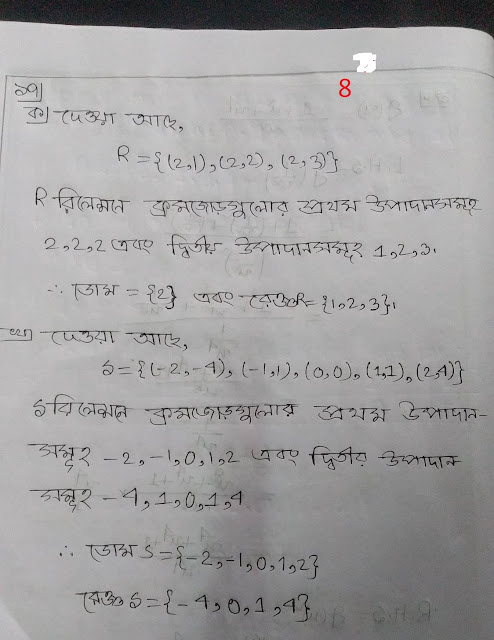 8
১৭|
ক) দেওয়া আছে,
R = {(2,1), (2,2), (2,3)}
R রিলেশনে ক্রমজোড়গুলোর প্রথম উপাদানসমূহ
2,2,2 এবং দ্বিতীয় উপাদানসমূহ 1,2,3.
∴ ডোম = {2} এবং রেঞ্জR= {1,2,3}.
খ) দেওয়া আছে,
S = {(-2,-4), (-1,1), (0,0), (1,1), (2,4)}
S রিলেশনে ক্রমজোড়গুলোর প্রথম উপাদান-
সমূহ -2,-1,0,1,2 এবং দ্বিতীয় উপাদান
সমূহ -4,1,0,1,4
∴ ডোম S = {-2,-1,0,1,2}
রেঞ্জ S = {-4,0,1,4}